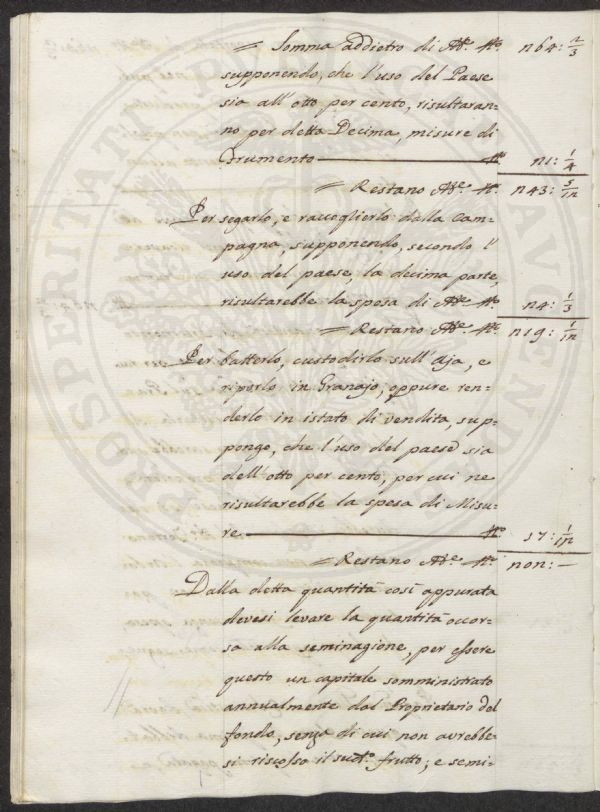 = Somma addietro di M.e N.o 264: 2/3
supponendo, che l'uso del Paese
sia all'otto per cento, risultaran=
no per detta Decima, misure di
Frumento — N.o 21: 1/4
= Restano M.e N.o 243: 5/12
Per segarlo, e raccoglierlo dalla Cam=
pagna, supponendo, secondo l'
uso del paese, la decima parte,
risultarebbe la spesa di M.e N.o 24: 1/3
= Restano M.e N.o 219: 1/12
Per batterlo, custodirlo sull'Aja, e
riporlo in Granajo, oppure ren=
derlo in istato di vendita, sup=
pongo, che l'uso del paese sia
dell'otto per cento, per cui ne
risultarebbe la spesa di Misu=
re — N.o 17: 1/12
= Restano M.e N.o 202: —
Dalla detta quantità così appurata
devesi levare la quantità occor=
sa alla seminagione, per essere
questo un capitale somministrato
annualmente dal Proprietario del
fondo, senza di cui non avrebbe=
si riscosso il sud.o frutto; e semi=
PROSPERITATI PUBLICAE AUGENDAE